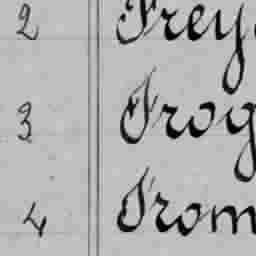 2 Frey
3 Frog
4 From